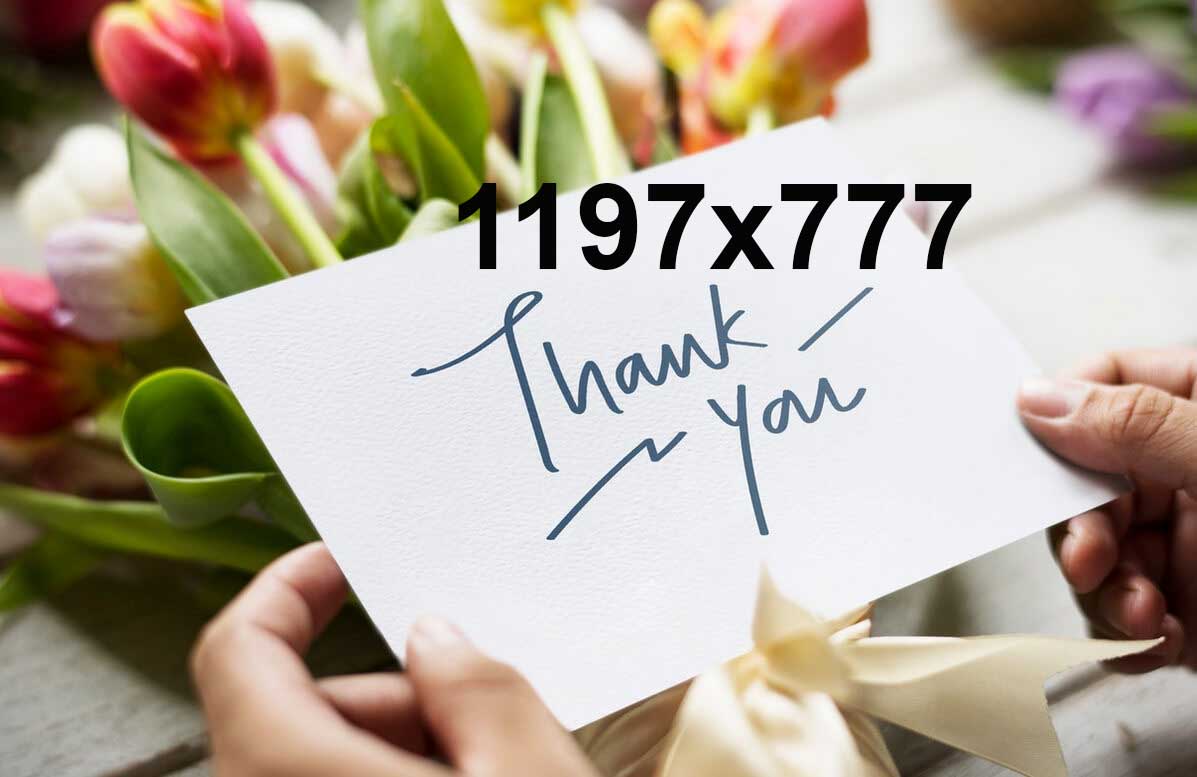 1197x777
Thank
You